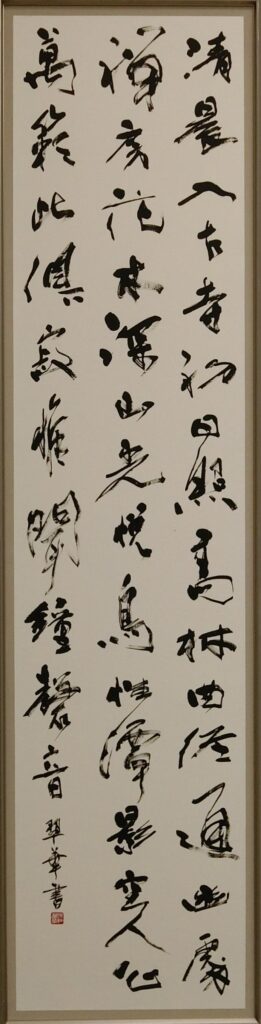 清晨入古寺初日照高林曲徑通幽處
禪房花木深山光悅鳥性潭影空人心
萬籟此俱寂惟聞鐘磬音 翠華書